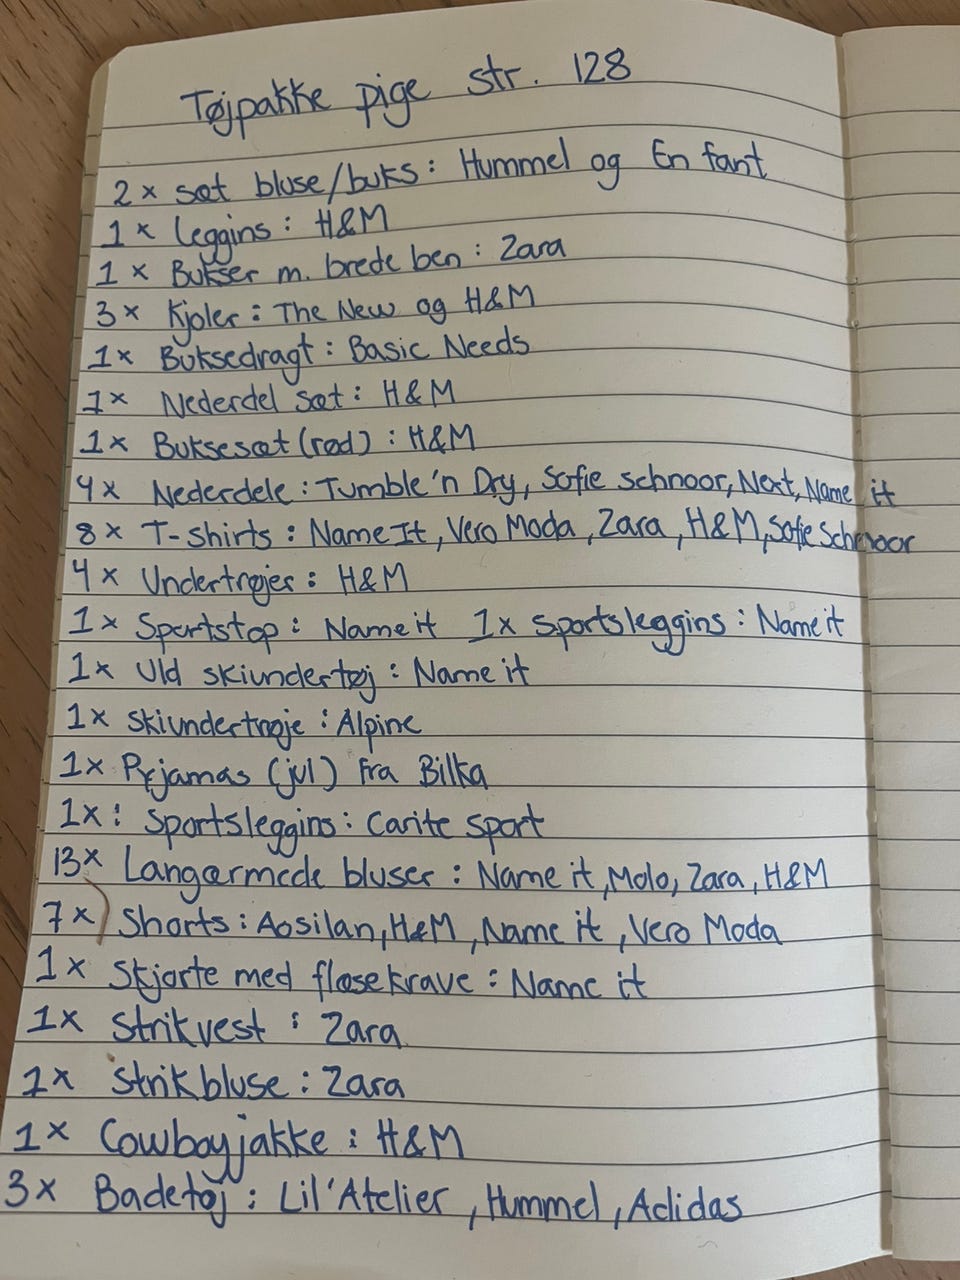 Tøjpakke pige str. 128
2 x sæt bluse/buks: Hummel og En fant
1 x leggins: H&M
1 x Bukser m. brede ben: Zara
3 x Kjoler: The New og H&M
1 x Buksedragt: Basic Needs
1 x Nederdel sæt: H&M
1 x Buksesæt (rød): H&M
4 x Nederdele: Tumble'n Dry, Sofie schnoor, Next, Name it
8 x T-shirts: Name It, Vero Moda, Zara, H&M, Sofie Schnoor
4 x Undertrøjer: H&M
1 x Sportstop: Name it 1x sportsleggins: Name it
1 x Uld skiundertøj: Name it
1 x skiundertrøje: Alpine
1 x Pyjamas (jul) fra Bilka
1x: Sportsleggins: Carite sport
13x Langærmede bluser: Name it, Molo, Zara, H&M
7 x) Shorts: Aosilan, H&M, Name it, Vero Moda
1 x Skjorte med flæsekrave: Name it
1x Strikvest: Zara
1x Strikbluse: Zara
1x Cowboyjakke: H&M
3x Badetøj: Lil'Atelier, Hummel, Adidas